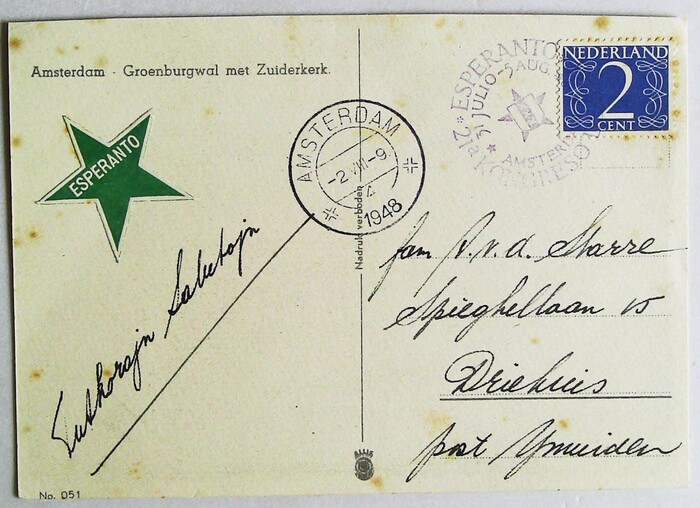 Amsterdam - Groenburgwal met Zuiderkerk.
ESPERANTO
Tutkorajn Salutojn
No. 051
AMSTERDAM
-2.VIII-9
4
1948
Nadruk verboden
ESPERANTO
31 JULIO-5 AUG.
21a KONGRESO
AMSTERD
NEDERLAND
2
CENT
fam P. v. d. Starre
Spieghellaan 15
Driehuis
post Ymuiden